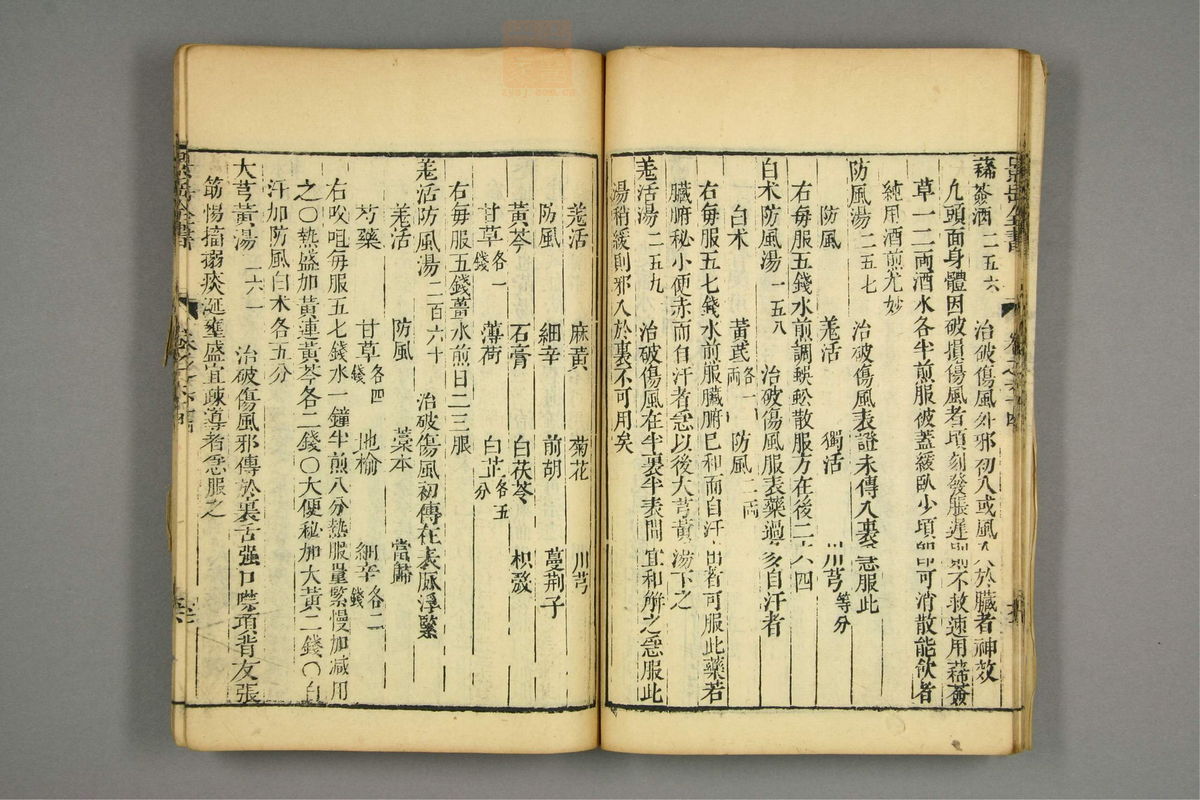 景岳全書
豨薟酒 二五六 治破傷風外邪初入或風入於臟者神效
凡頭面身體因破損傷風者頃刻發脹遲則不救速用豨薟
草一二兩酒水各半煎服被蓋緩臥少頃卽可消散能飲者
純用酒煎尤妙
防風湯 二五七 治破傷風表證未傳入裏急服此
防風 羗活 獨活 川芎等分
右每服五錢水煎調蜈蚣散服方在後二六四
白术防風湯 一五八 治破傷風服表藥過多自汗者
白术 黃芪各一兩 防風二兩
右每服五七錢水煎服臟腑已和而自汗出者可服此藥若
臟腑秘小便赤而自汗者急以後大芎黃湯下之
羗活湯 二五九 治破傷風在半裏半表間宜和解之急服此
湯稍緩則邪入於裏不可用矣
羗活 麻黃 菊花 川芎
防風 細辛 前胡 蔓荆子
黃芩 石膏 白茯苓 枳殼
甘草各一錢 薄荷 白芷各五分
右每服五錢薑水煎日二三服
羗活防風湯 二百六十 治破傷風初傳在表脈浮緊
羗活 防風 藁本 當歸
芍藥 甘草各四錢 地榆 細辛各二錢
右㕮咀每服五七錢水一鐘半煎八分熱服量緊慢加减用
之〇熱盛加黃連黃芩各二錢〇大便秘加大黃二錢〇自
汗加防風白术各五分
大芎黃湯 二六一 治破傷風邪傳於裏舌强口噤項背反張
筋惕搐搦痰涎壅盛宜疎導者急服之